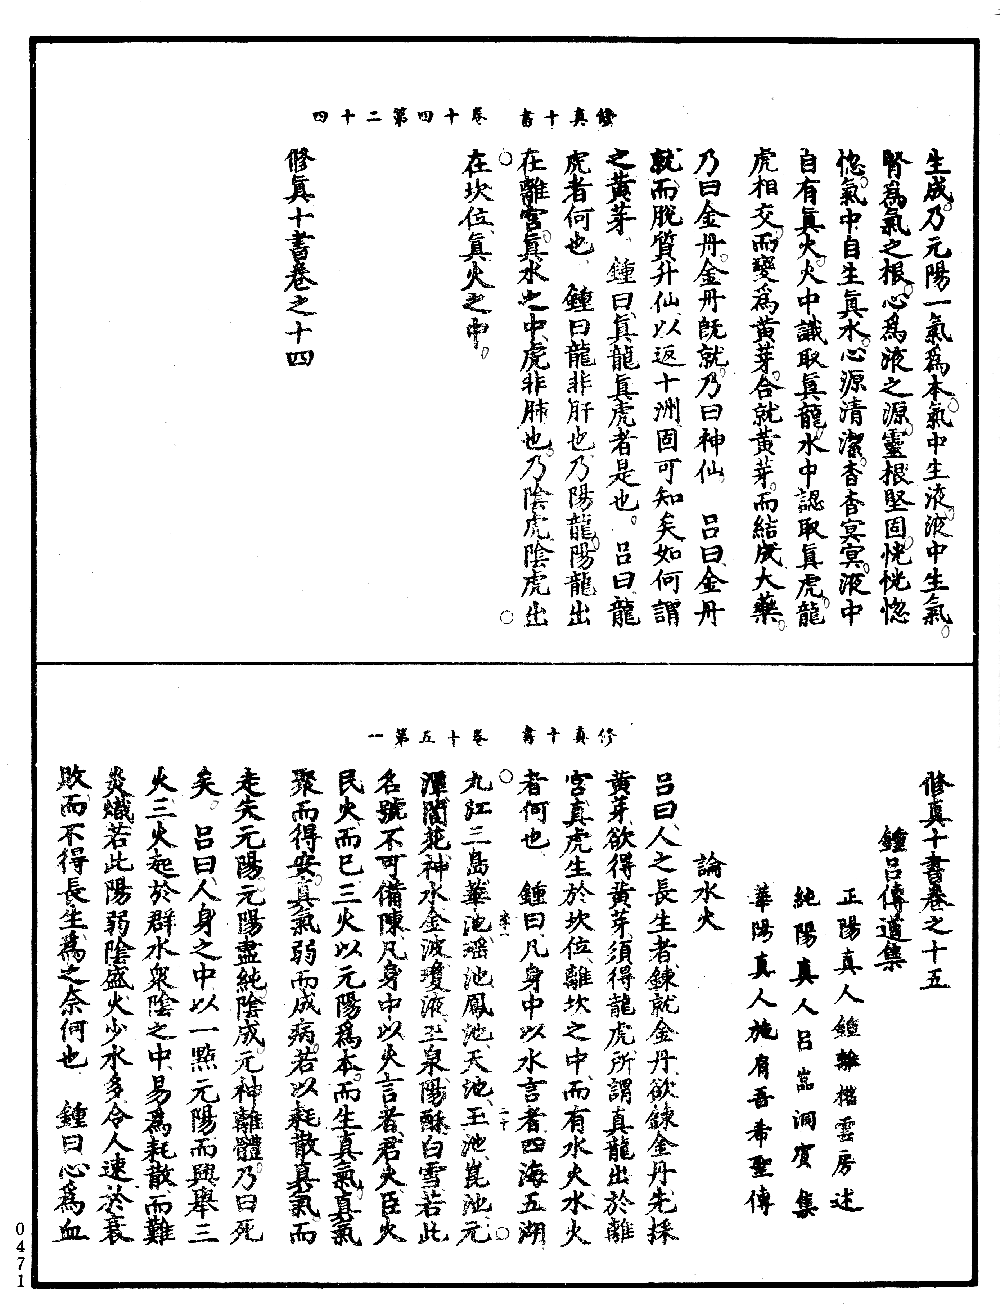 修真十書　卷十四第二十四
生成。乃元陽一氣爲本。氣中生液。液中生氣。
腎爲氣之根。心爲液之源。靈根堅固。恍恍惚
惚。氣中自生眞水。心源清潔。杳杳冥冥。液中
自有眞火。火中識取眞龍。水中認取眞虎。龍
虎相交。而變爲黃芽。合就黃芽。而結成大藥。
乃曰金丹。金丹既就。乃曰神仙　呂曰金丹
就而脫質升仙。以返十洲。固可知矣。如何謂
之黃芽　鍾曰。眞龍眞虎者是也。　呂曰龍
虎者何也　鍾曰龍非肝也。乃陽龍。陽龍出
在離宮眞水之中。虎非肺也。乃陰虎。陰虎出
在坎位眞火之中。
修眞十書卷之十四
修真十書　卷十五第一
修真十書卷之十五
鍾呂傳道集
正陽真人鍾離權雲房述
純陽真人呂嵓洞賓集
華陽真人施肩吾希聖傳
論水火
呂曰。人之長生者。鍊就金丹。欲鍊金丹。先採
黃芽。欲得黃芽。須得龍虎。所謂真龍出於離
宮。真虎生於坎位。離坎之中。而有水火。水火
者何也　鍾曰。凡身中以水言者。四海五湖
九江三島。華池瑤池。鳳池天池。玉池崑池。元
潭閬苑。神水金波。瓊液玉泉。陽酥白雪。若此
名號。不可備陳。凡身中以火言者。君火臣火
民火而已。三火以元陽爲本。而生真氣。真氣
聚而得安。真氣弱而成病。若以耗散真氣。而
走失元陽。元陽盡。純陰成。元神離體。乃曰死
矣。　呂曰。人身之中。以一點元陽。而興舉三
火。三火起於群水衆陰之中。易爲耗散。而難
炎熾。若此陽弱陰盛。火少水多。令人速於衰
敗。而不得長生。爲之奈何也　鍾曰。心爲血
0471